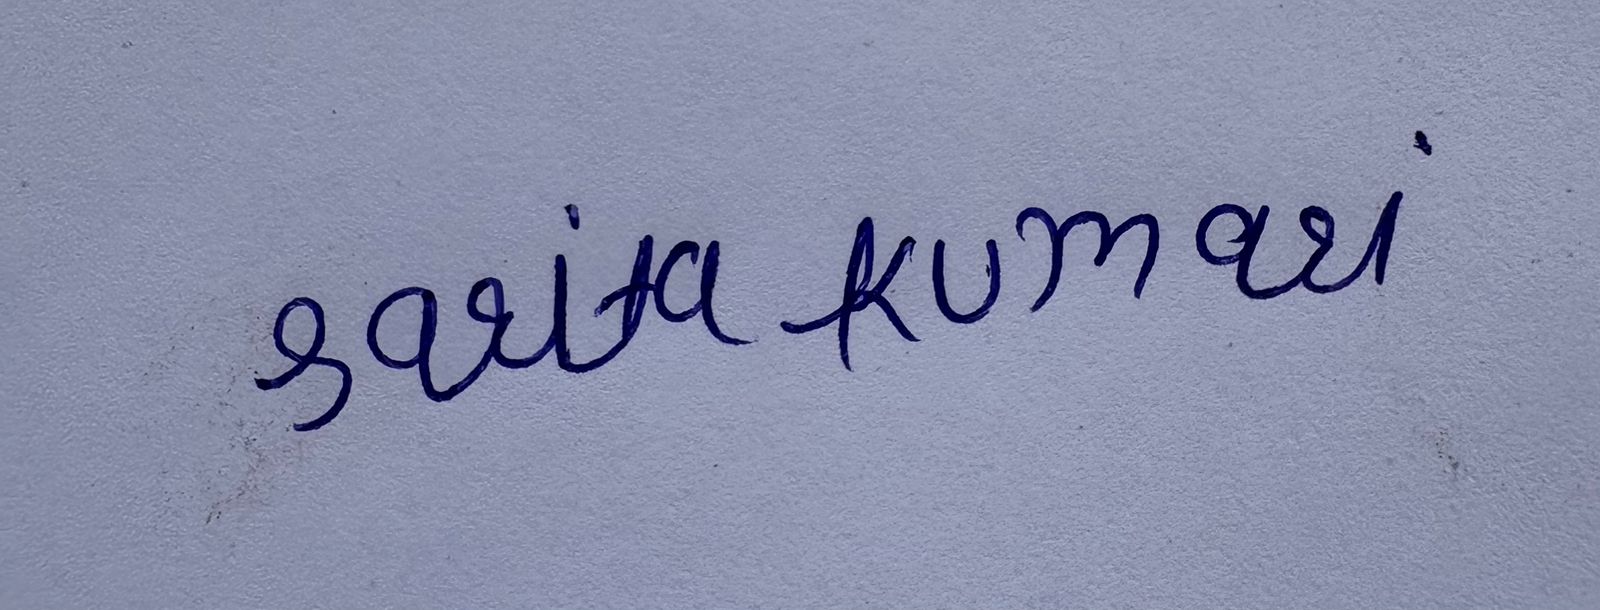 Sarita kumari